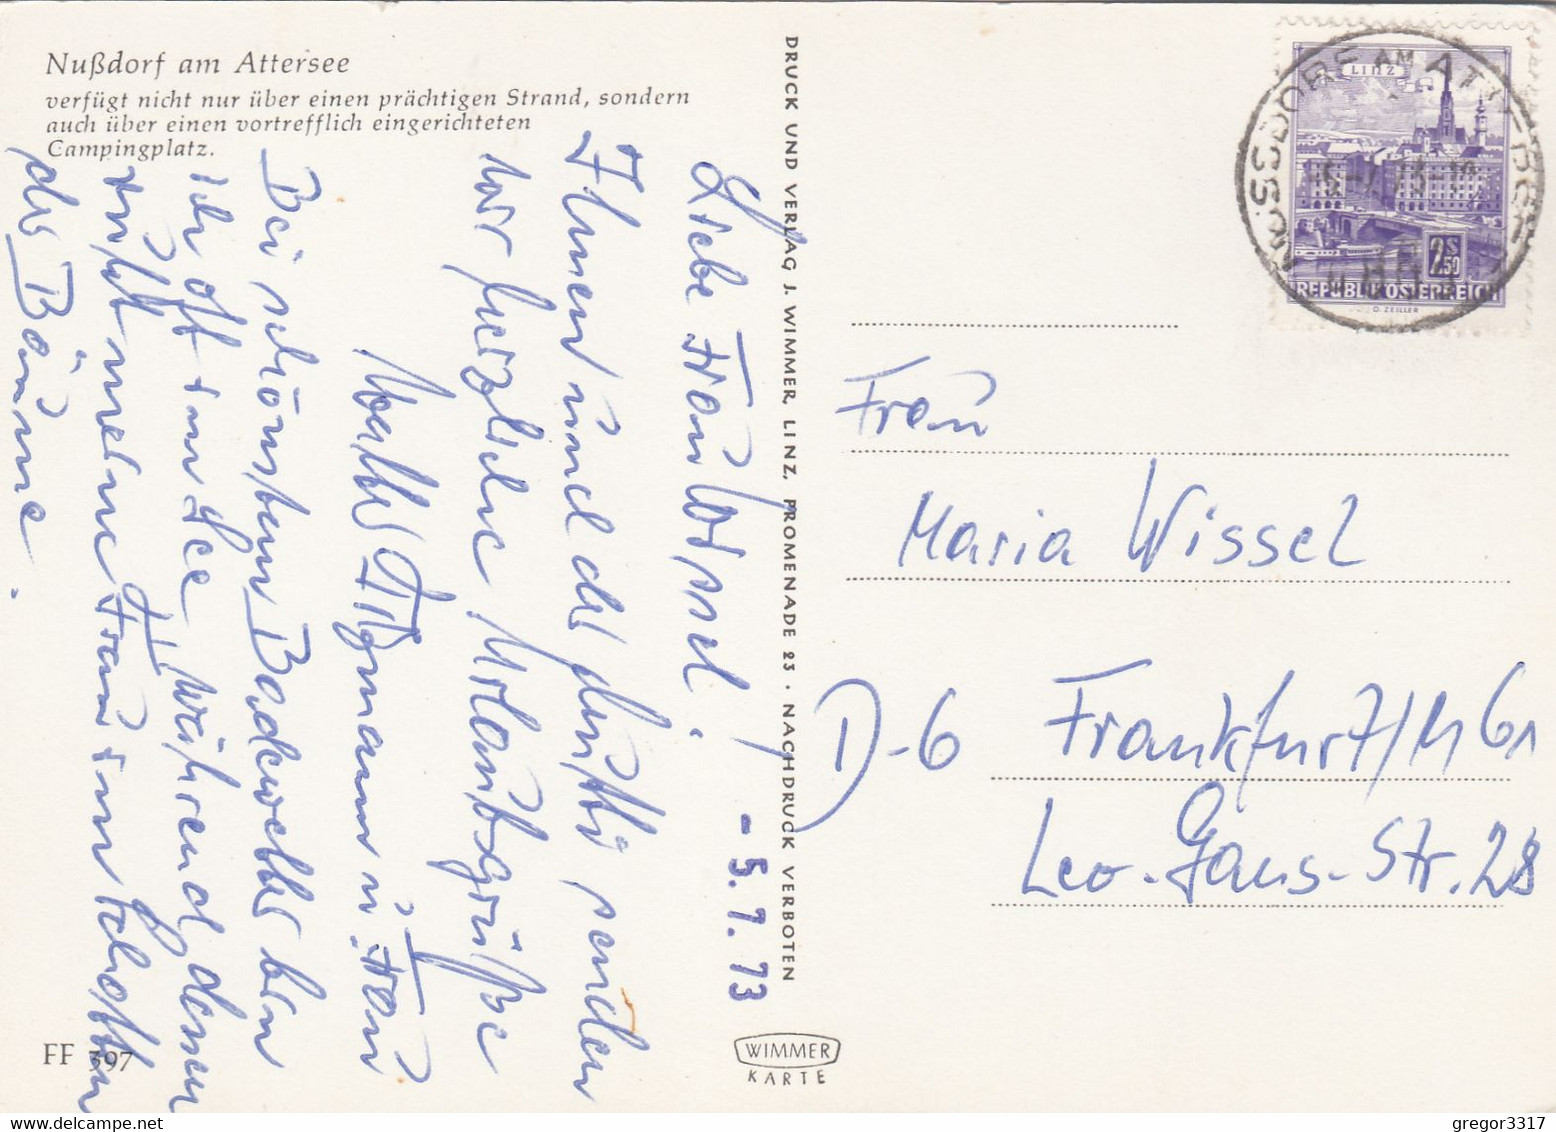 Nußdorf am Attersee
verfügt nicht nur über einen prächtigen Strand, sondern
auch über einen vortrefflich eingerichteten
Campingplatz.
Liebe Frau Wissel!
Ihnen und der Mutti senden
wir herzliche Urlaubsgrüße
Walter Tißmann u. Frau
Bei schönstem Badewetter bin
ich oft im See während dessen
meine Frau im Schatten
der Bäume.
- 5. 7. 73
FF 397
DRUCK UND VERLAG J. WIMMER, LINZ, PROMENADE 23 · NACHDRUCK VERBOTEN
WIMMER
KARTE
LINZ
2 S 50
REPUBLIK ÖSTERREICH
O. ZEILLER
NUSSDORF AM ATTERSEE
Frau
Maria Wissel
D-6 Frankfurt/M 61
Leo-Gans-Str. 28
gregor3317